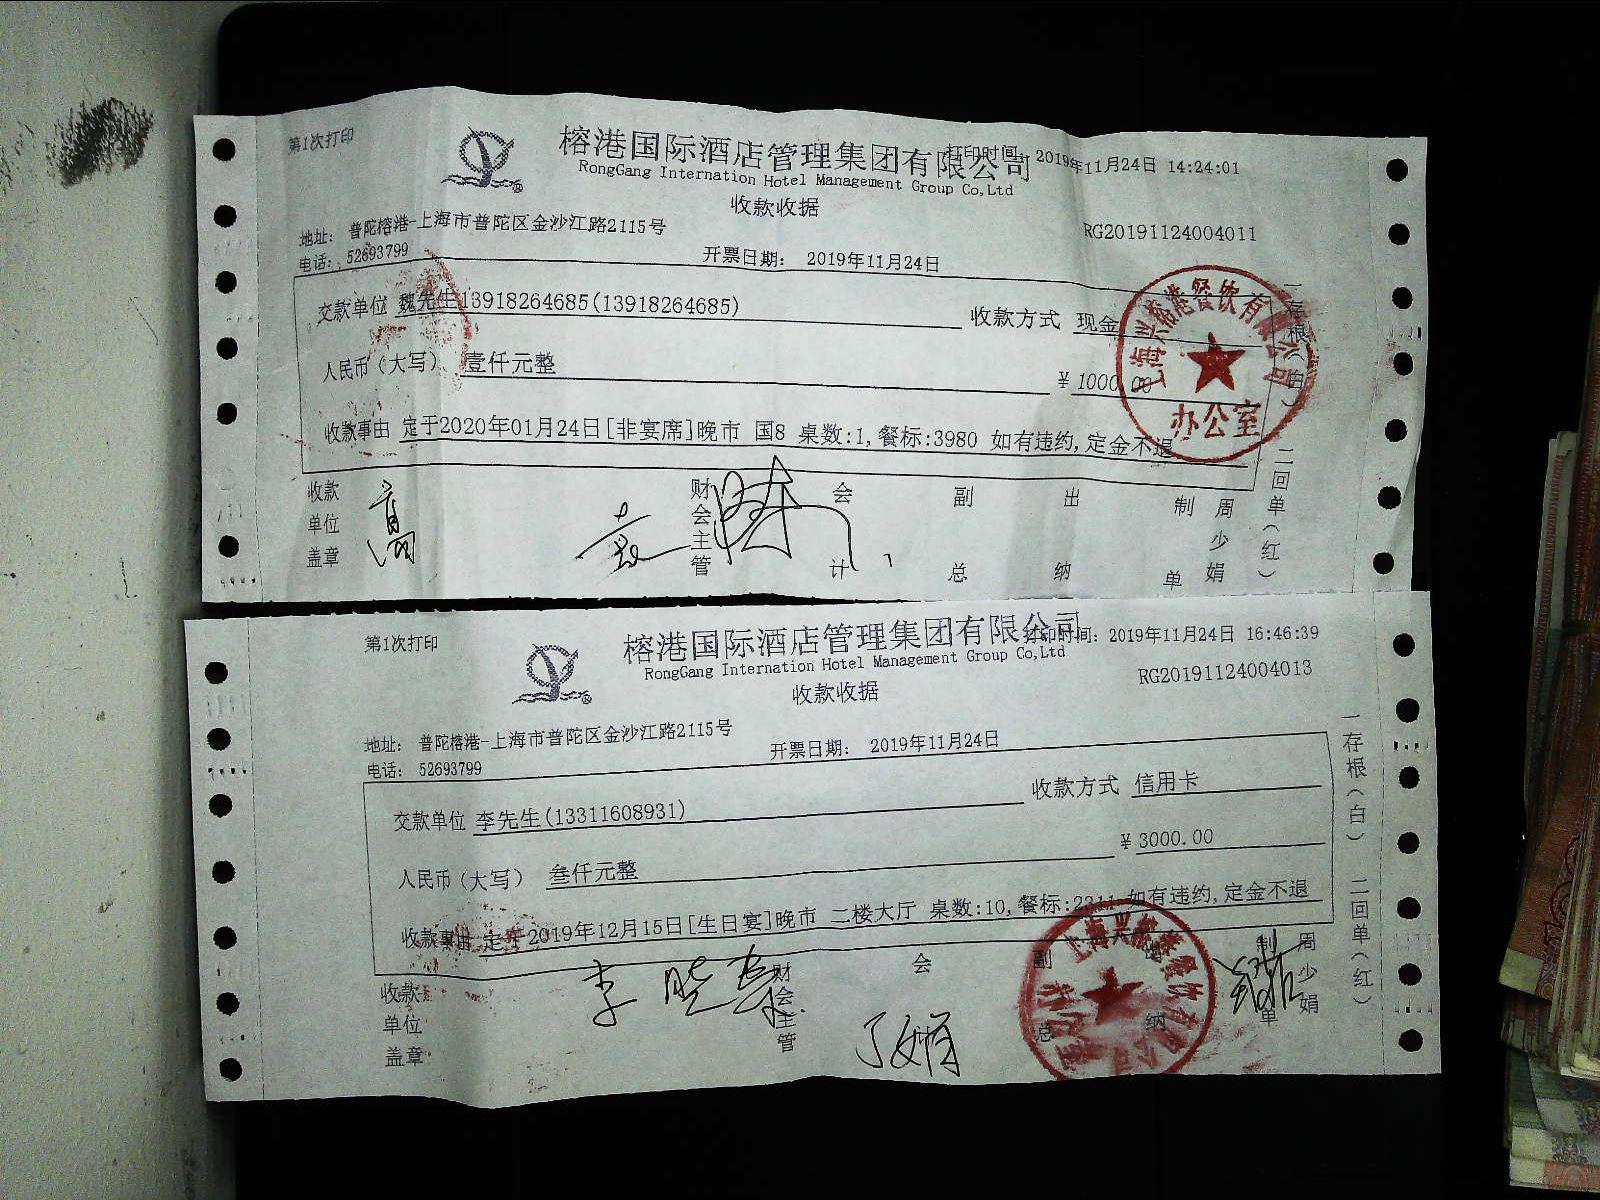 第1次打印
榕港国际酒店管理集团有限公司 打印时间: 2019年11月24日 14:24:01
RongGang Internation Hotel Management Group Co,Ltd
收款收据
地址: 普陀榕港-上海市普陀区金沙江路2115号
RG20191124004011
电话: 52693799
开票日期: 2019年11月24日
交款单位 魏先生13918264685(13918264685) 收款方式 现金
人民币(大写) 壹仟元整 ¥ 1000.00
收款事由 定于2020年01月24日[非宴席]晚市 国8 桌数:1,餐标:3980 如有违约,定金不退
收款单位盖章 高 袁 财会主管 会计 副总 出纳 制单 周少娟
一存根(白) 二回单(红)
上海兴榕港餐饮有限公司
办公室
第1次打印
榕港国际酒店管理集团有限公司 打印时间: 2019年11月24日 16:46:39
RongGang Internation Hotel Management Group Co,Ltd
RG20191124004013
收款收据
地址: 普陀榕港-上海市普陀区金沙江路2115号
电话: 52693799
开票日期: 2019年11月24日
交款单位 李先生(13311608931) 收款方式 信用卡
人民币(大写) 叁仟元整 ¥ 3000.00
收款事由 定于2019年12月15日[生日宴]晚市 二楼大厅 桌数:10,餐标:2311 如有违约,定金不退
收款单位盖章 李 财会主管 丁娟 会 副总 出纳 制单 周少娟
一存根(白) 二回单(红)
上海兴榕港餐饮有限公司